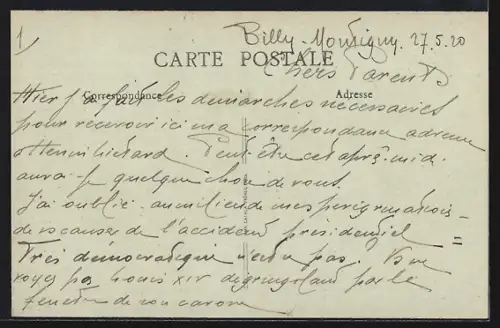 1
Billy-Montigny. 27.5.20
CARTE POSTALE
Chers Parents
Correspondance Adresse
Hier j'ai fait les démarches nécessaires
pour recevoir ici ma correspondance adressée
Henin Liétard. Peut-être cet après-midi
aurai-je quelque chose de vous.
J'ai oublié au milieu de mes pérégrinations
de vs causer de l'accident présidentiel =
Très démocratique n'est-ce pas.
voyez pas Louis XIV dégringolant par la
fenêtre de son carosse